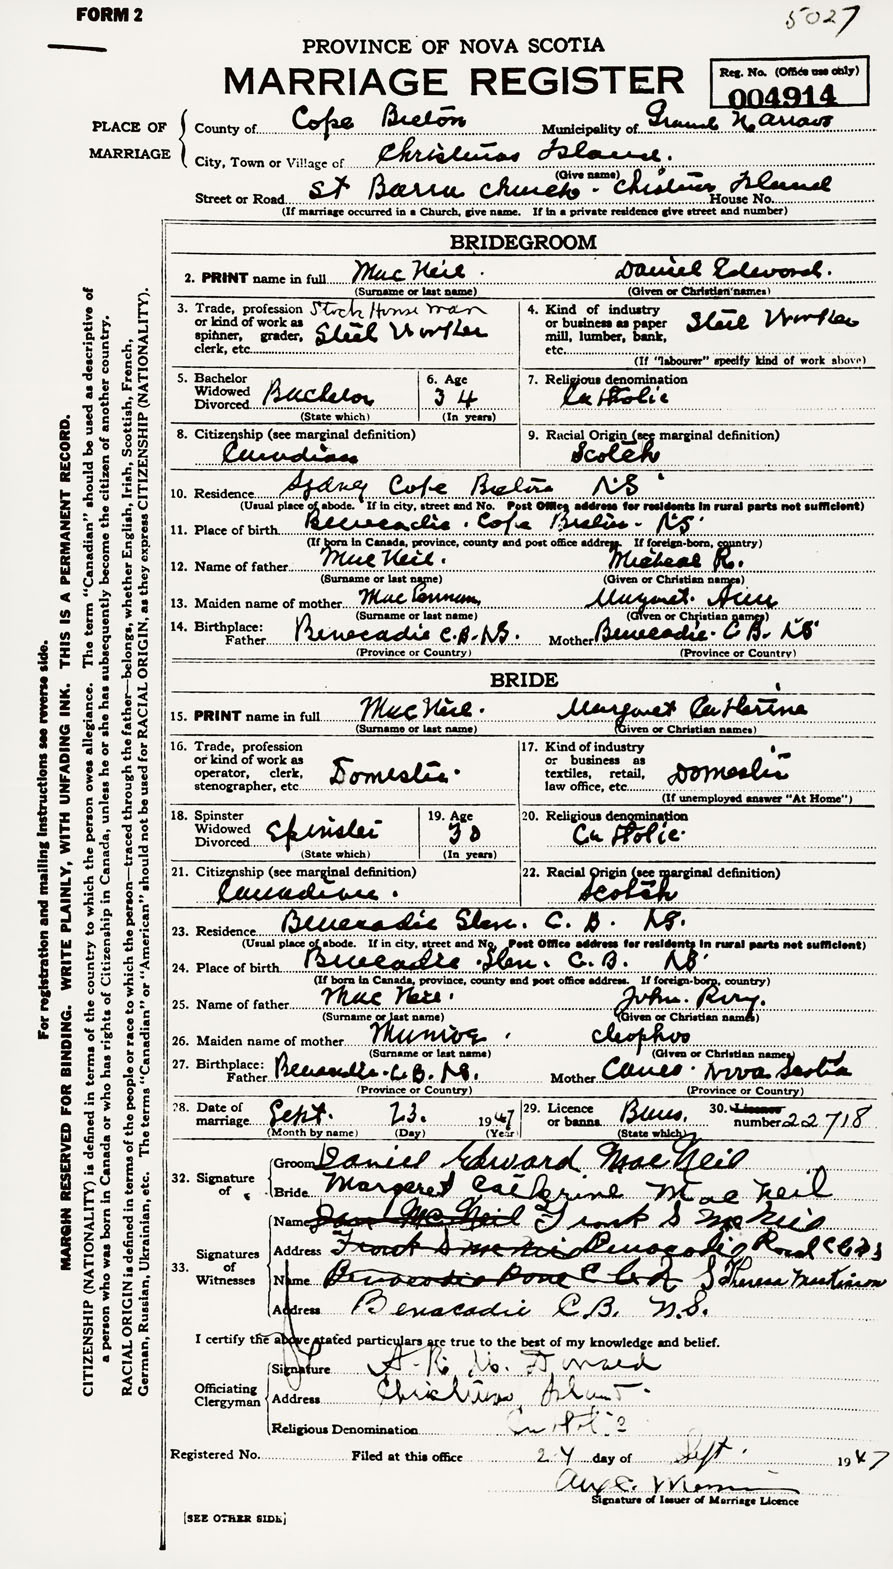 FORM 2
5027
PROVINCE OF NOVA SCOTIA
MARRIAGE REGISTER
Reg. No. (Office use only)
004914
PLACE OF MARRIAGE
County of Cape Breton Municipality of Grand Narrows
City, Town or Village of Christmas Island.
(Give name)
Street or Road St Barra Church - Christmas Island House No.
(If marriage occurred in a Church, give name. If in a private residence give street and number)
BRIDEGROOM
2. PRINT name in full Mac Neil. Daniel Edward.
(Surname or last name) (Given or Christian names)
3. Trade, profession or kind of work as spinner, grader, clerk, etc. Stock House man Steel Worker
4. Kind of industry or business as paper mill, lumber, bank, etc. Steel Worker
(If "labourer" specify kind of work above)
5. Bachelor Widowed Divorced Bachelor
(State which)
6. Age 34
(In years)
7. Religious denomination Catholic
8. Citizenship (see marginal definition) Canadian
9. Racial Origin (see marginal definition) Scotch
10. Residence Sydney Cape Breton NS
(Usual place of abode. If in city, street and No. Post Office address for residents in rural parts not sufficient)
11. Place of birth Benecadie. Cape Breton - NS.
(If born in Canada, province, county and post office address. If foreign-born, country)
12. Name of father Mac Neil. Micheal R.
(Surname or last name) (Given or Christian names)
13. Maiden name of mother Mac Lennan Margaret. Ann
(Surname or last name) (Given or Christian names)
14. Birthplace: Father Benecadie C.B. NS. Mother Benecadie. C.B. NS
(Province or Country) (Province or Country)
BRIDE
15. PRINT name in full Mac Neil. Margaret Catherine
(Surname or last name) (Given or Christian names)
16. Trade, profession or kind of work as operator, clerk, stenographer, etc. Domestic.
17. Kind of industry or business as textiles, retail, law office, etc. Domestic
(If unemployed answer "At Home")
18. Spinster Widowed Divorced Spinster
(State which)
19. Age 30
(In years)
20. Religious denomination Catholic.
21. Citizenship (see marginal definition) Canadian.
22. Racial Origin (see marginal definition) Scotch
23. Residence Benecadie Glen. C.B. NS.
(Usual place of abode. If in city, street and No. Post Office address for residents in rural parts not sufficient)
24. Place of birth Benecadie. Glen. C.B. NS
(If born in Canada, province, county and post office address. If foreign-born, country)
25. Name of father Mac Neil. John. Rory.
(Surname or last name) (Given or Christian names)
26. Maiden name of mother Munroe. Cleophos
(Surname or last name) (Given or Christian names)
27. Birthplace: Father Benacadie. C.B. NS. Mother Canso. Nova Scotia
(Province or Country) (Province or Country)
28. Date of marriage Sept. 23. 1947
(Month by name) (Day) (Year)
29. Licence or banns Banns.
(State which)
30. Licence number 22718
32. Signature of
Groom Daniel Edward MacNeil
Bride Margaret Catherine Mac Neil
33. Signatures of Witnesses
Name Frank S McNeil
Address Benacadie Road
Name Theresa
Address Benacadie C.B. N.S.
I certify the above stated particulars are true to the best of my knowledge and belief.
Officiating Clergyman
Signature A. R. Mc Donald
Address Christmas Island.
Religious Denomination Catholic
Registered No. Filed at this office 24 day of Sept. 1947
Signature of Issuer of Marriage Licence
[SEE OTHER SIDE]
For registration and mailing instructions see reverse side.
MARGIN RESERVED FOR BINDING. WRITE PLAINLY, WITH UNFADING INK. THIS IS A PERMANENT RECORD.
CITIZENSHIP (NATIONALITY) is defined in terms of the country to which the person owes allegiance. The term "Canadian" should be used as descriptive of
a person who was born in Canada or who has rights of Citizenship in Canada, unless he or she has subsequently become the citizen of another country.
RACIAL ORIGIN is defined in terms of the people or race to which the person—traced through the father—belongs, whether English, Irish, Scottish, French,
German, Russian, Ukrainian, etc. The terms "Canadian" or "American" should not be used for RACIAL ORIGIN, as they express CITIZENSHIP (NATIONALITY).